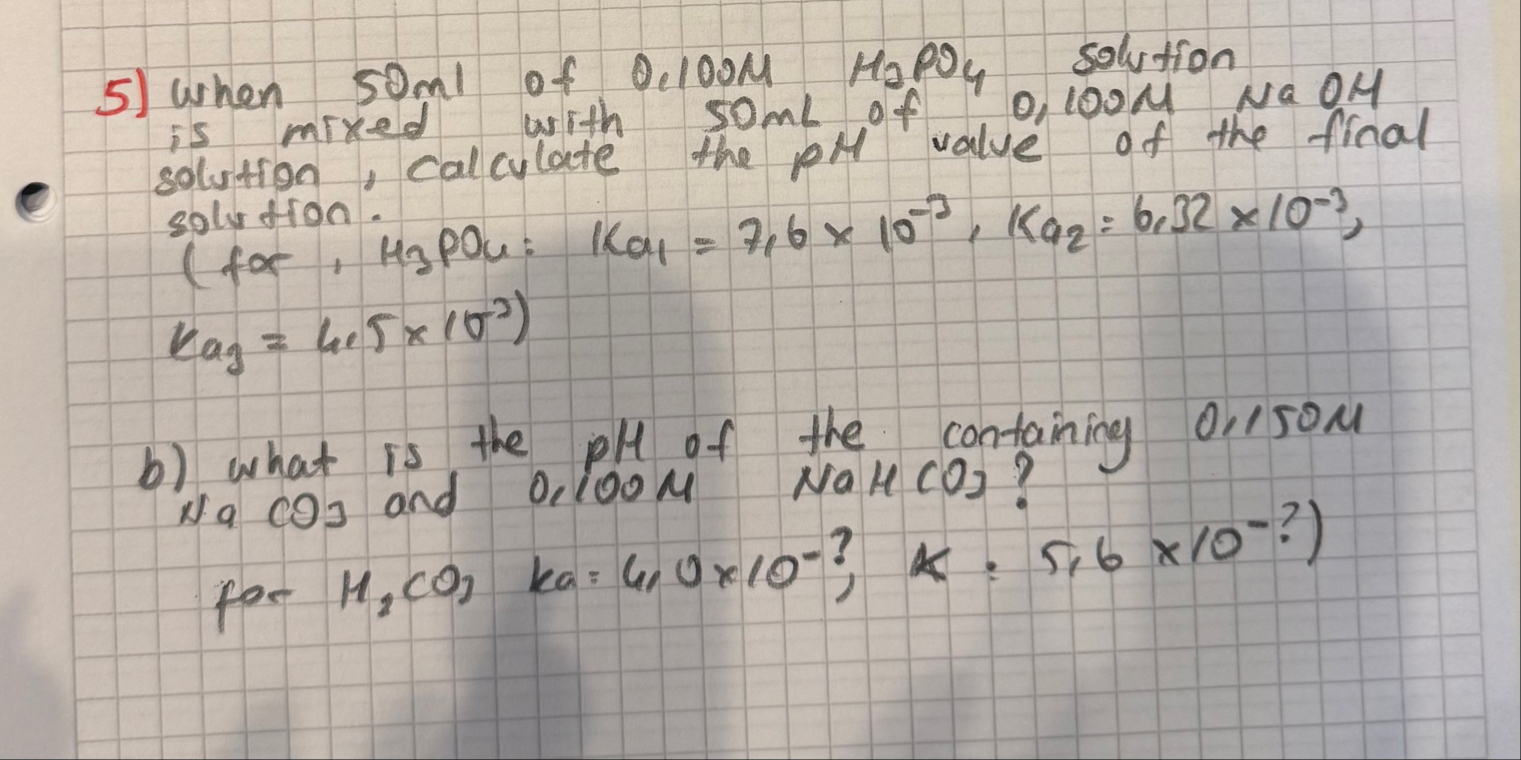 5) When 50ml of 0,100M H3PO4 solution
is mixed with 50mL of 0,100M NaOH
solution, calculate the pH value of the final
solution.
(for, H3PO4: Ka1 = 7,6 x 10^-3, Ka2 = 6,32 x 10^-3,
Ka3 = 4,5 x 10^-3)
b) what is the pH of the containing 0,150M
Na CO3 and 0,100M NaHCO3?
for H2CO3 ka = 4,0 x 10^-?, K : 5,6 x 10^-?)